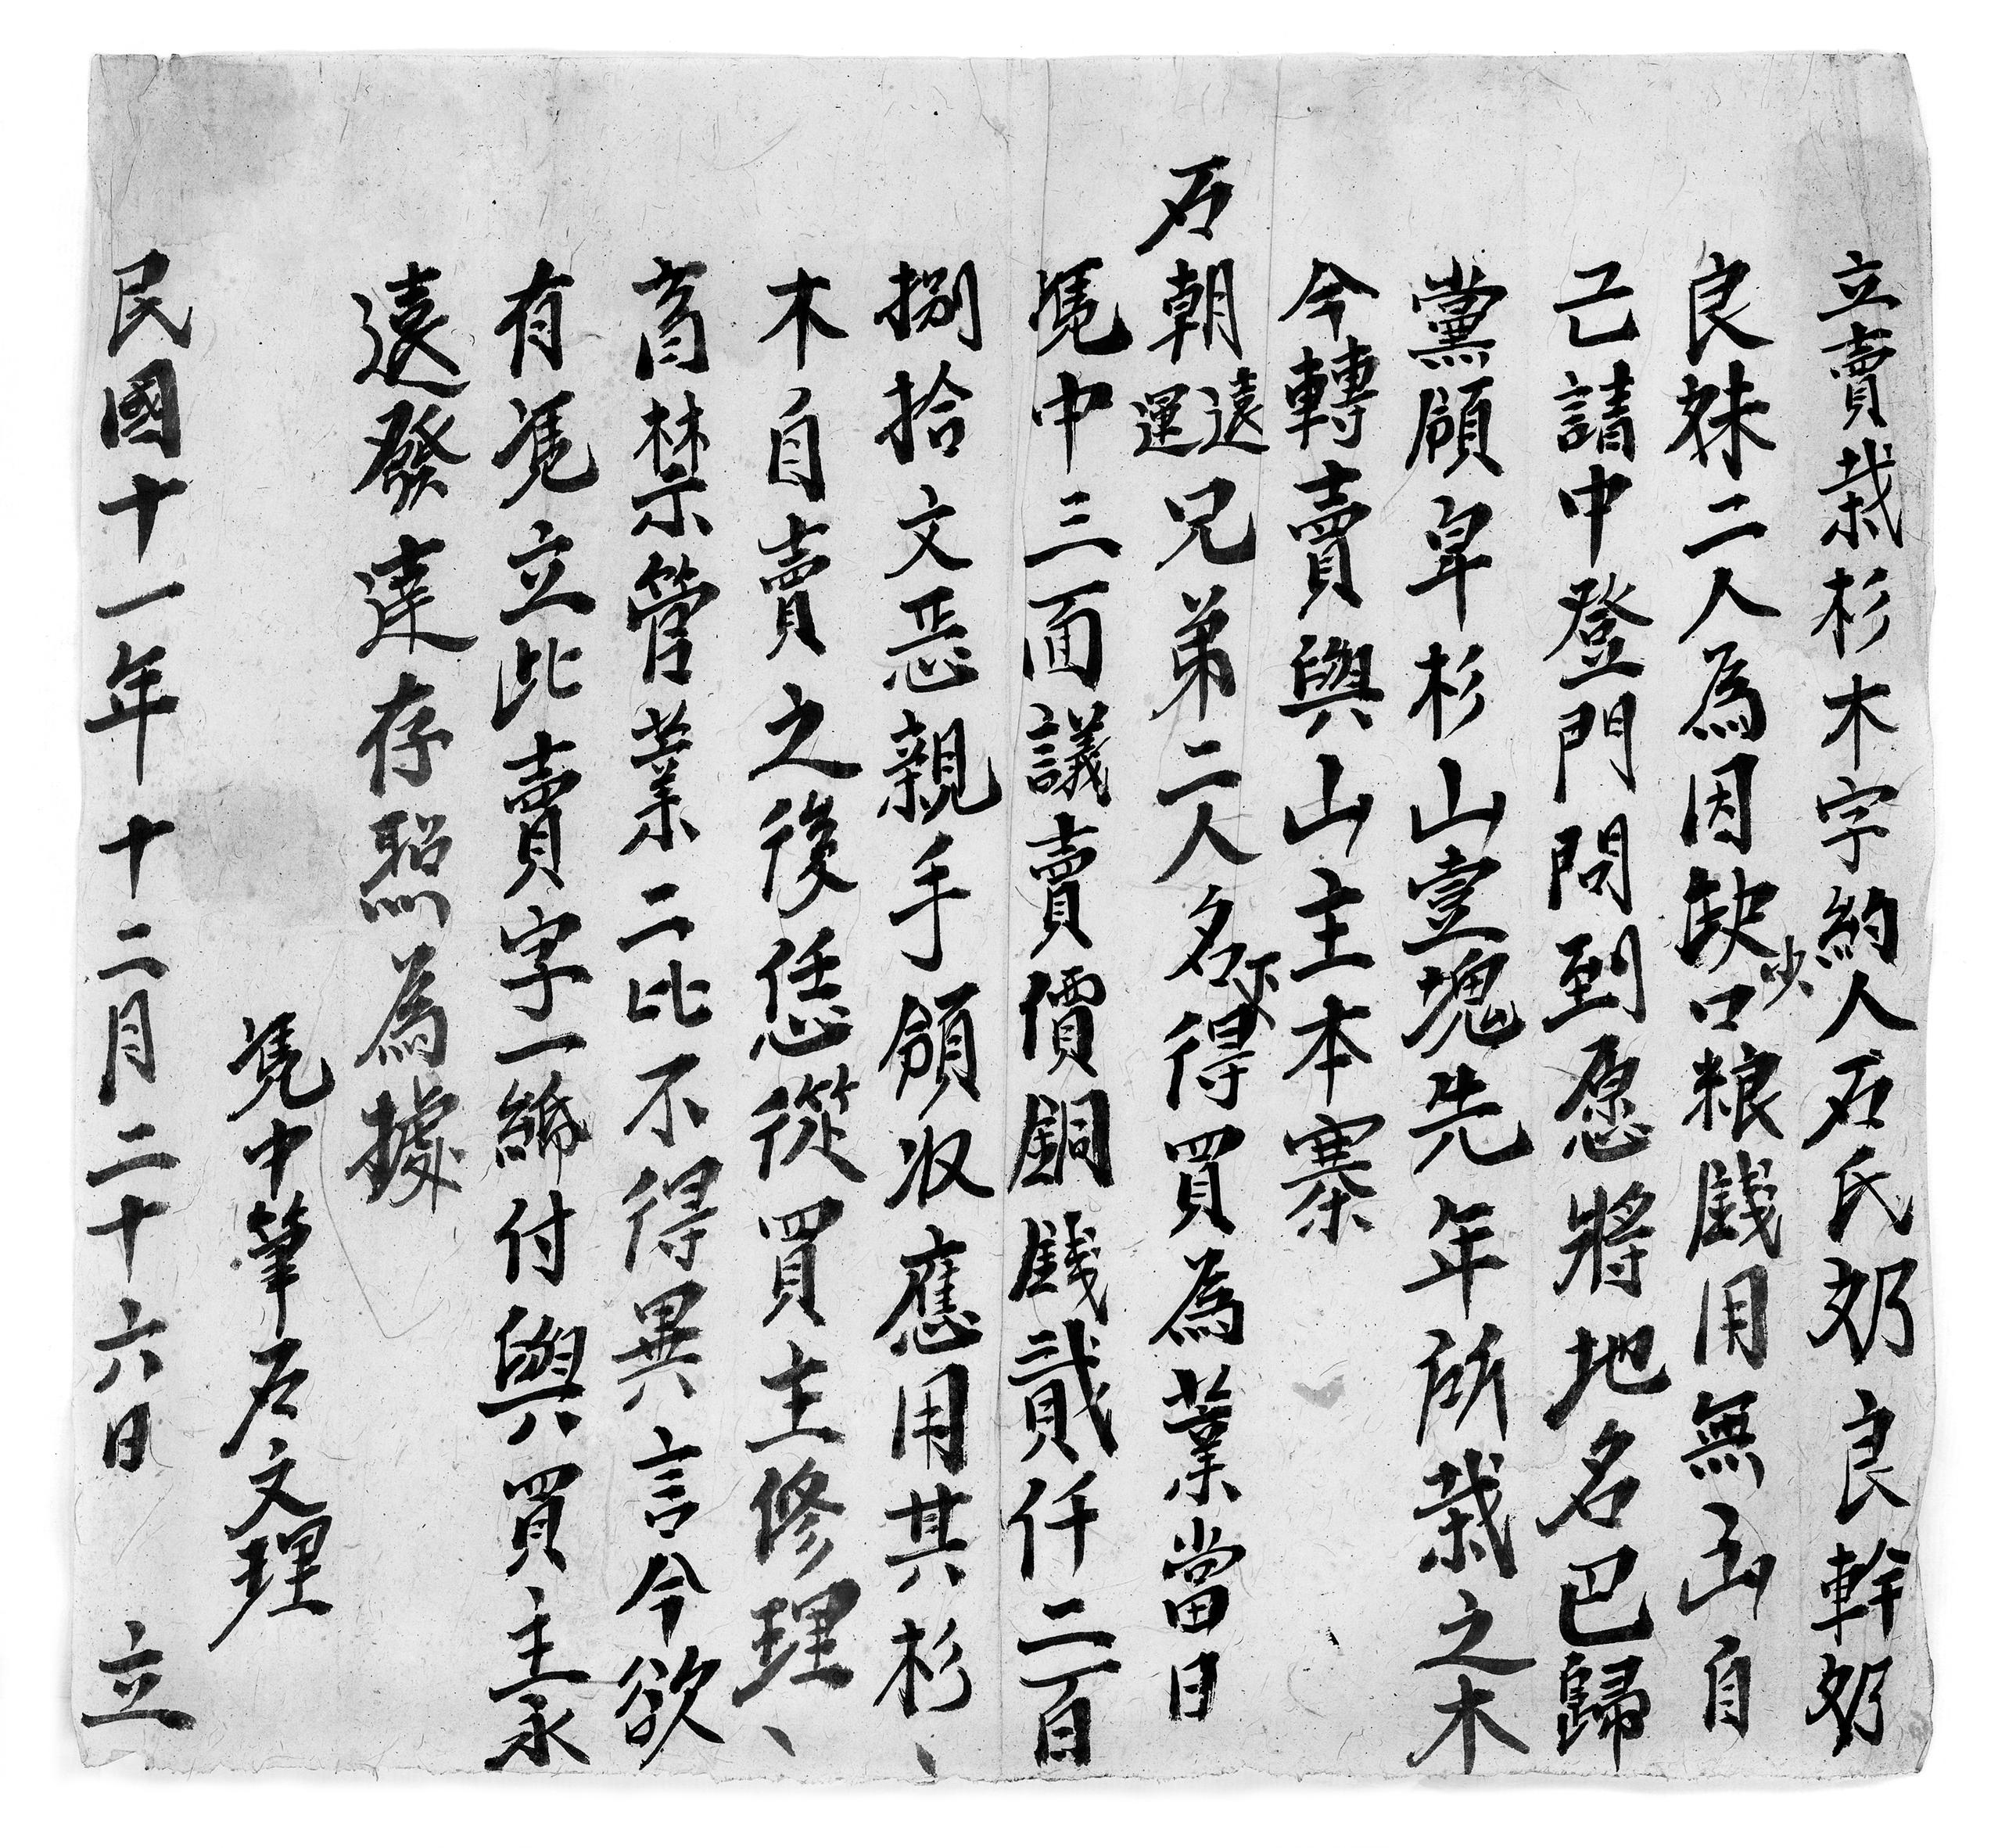 立賣栽杉木字約人石氏奶良幹奶
良妹二人為因缺少口粮錢用無出自
己請中登門問到愿將地名巴歸
黨頎皁杉山壹塊先年所栽之木
今轉賣與山主本寨
石朝遠運兄弟二人名下得買為業當日
凴中三面議賣價銅錢貳仟二百
捌拾文㤙親手領收應用其杉、
木自賣之後恁從買主修理、
畜禁管業二比不得異言今欲
有凴立此賣字一紙付與買主永
遠發達存照為據
凴中筆石文理
民國十一年十二月二十六日 立